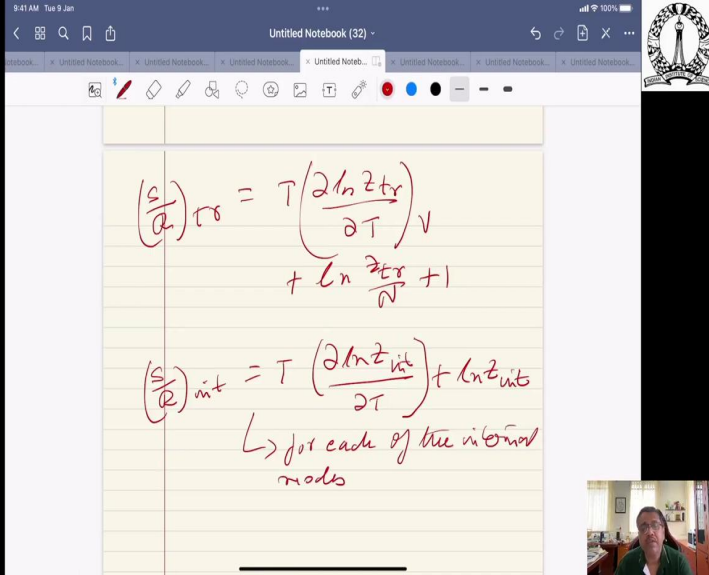 9:41 AM Tue 9 Jan
100%
Untitled Notebook (32)
otebook... × Untitled Notebook... × Untitled Notebook... × Untitled Notebook... × Untitled Noteb... × Untitled Notebook... × Untitled Notebook... × Untitled Notebook...
(S/R)tr = T(∂ln Ztr/∂T)V
+ ln Ztr/N + 1
(S/R)int = T(∂ln Zint/∂T) + ln Zint
↳ for each of the internal
modes